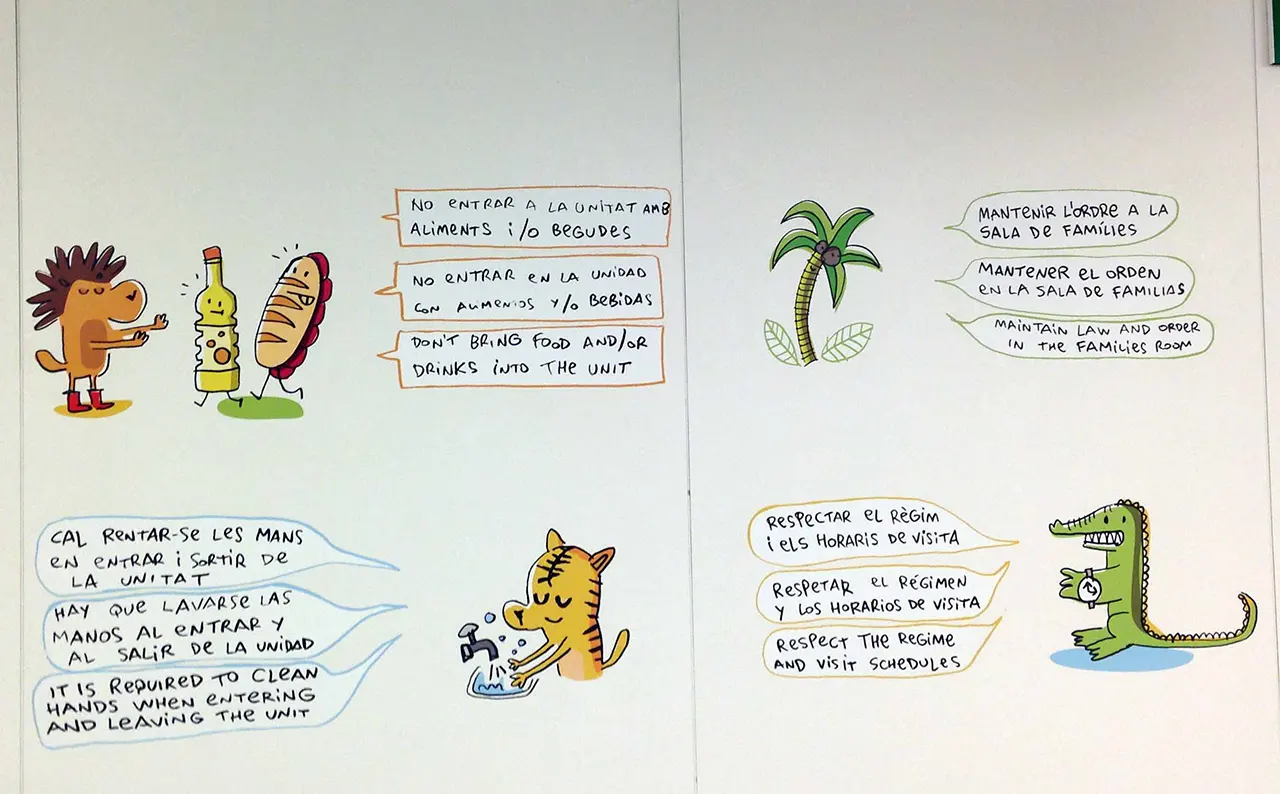 NO ENTRAR A LA UNITAT AMB
ALIMENTS i/O BEGUDES
NO ENTRAR EN LA UNIDAD
CON ALIMENTOS Y/O BEBIDAS
DON'T BRING FOOD AND/OR
DRINKS INTO THE UNIT
MANTENIR L'ORDRE A LA
SALA DE FAMÍLIES
MANTENER EL ORDEN
EN LA SALA DE FAMILIAS
MAINTAIN LAW AND ORDER
IN THE FAMILIES ROOM
CAL RENTAR-SE LES MANS
EN ENTRAR i SORTIR DE
LA UNITAT
HAY QUE LAVARSE LAS
MANOS AL ENTRAR Y
AL SALIR DE LA UNIDAD
IT IS REQUIRED TO CLEAN
HANDS WHEN ENTERING
AND LEAVING THE UNIT
RESPECTAR EL RÈGIM
i ELS HORARIS DE VISITA
RESPETAR EL RÉGIMEN
Y LOS HORARIOS DE VISITA
RESPECT THE REGIME
AND VISIT SCHEDULES